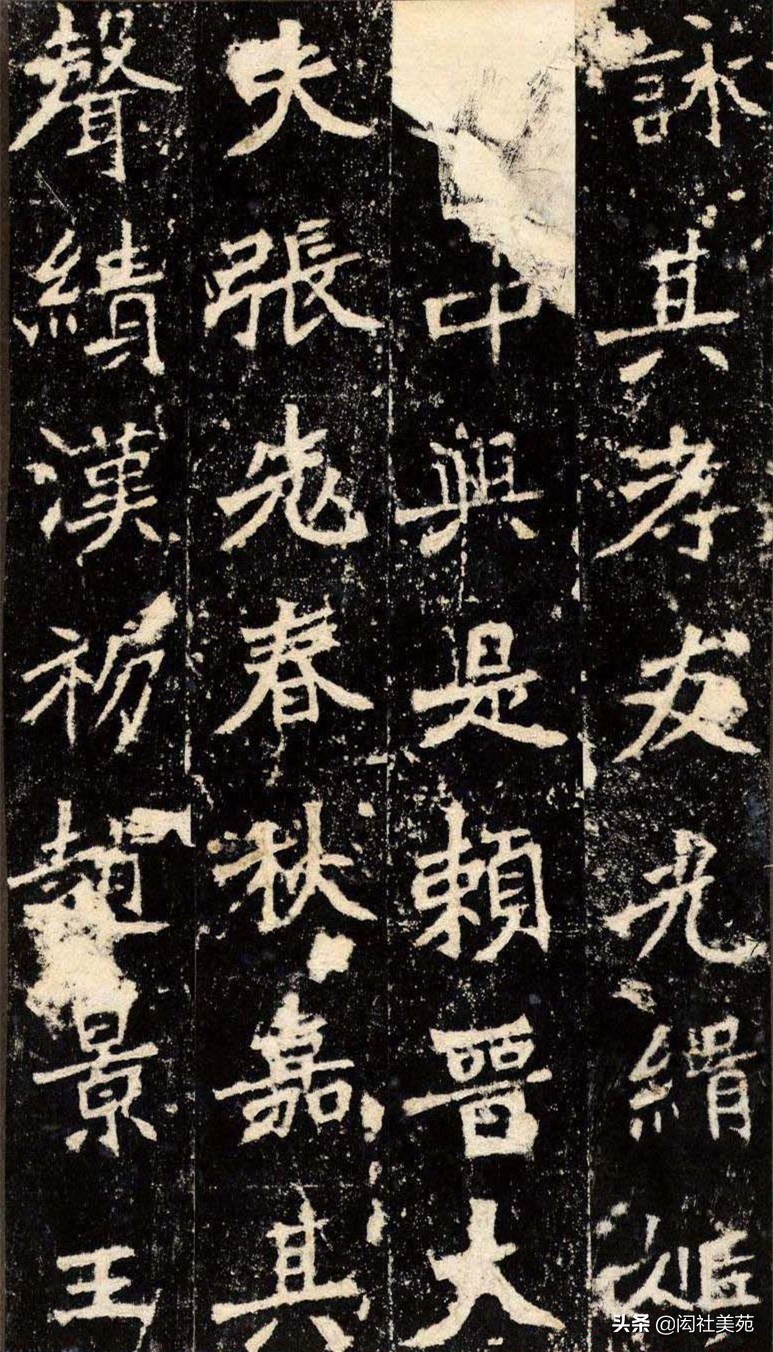 詠其孝友光緝姬
中興是賴晉大
夫張老春秋嘉其
聲績漢初趙景王
头条 @闳社美苑